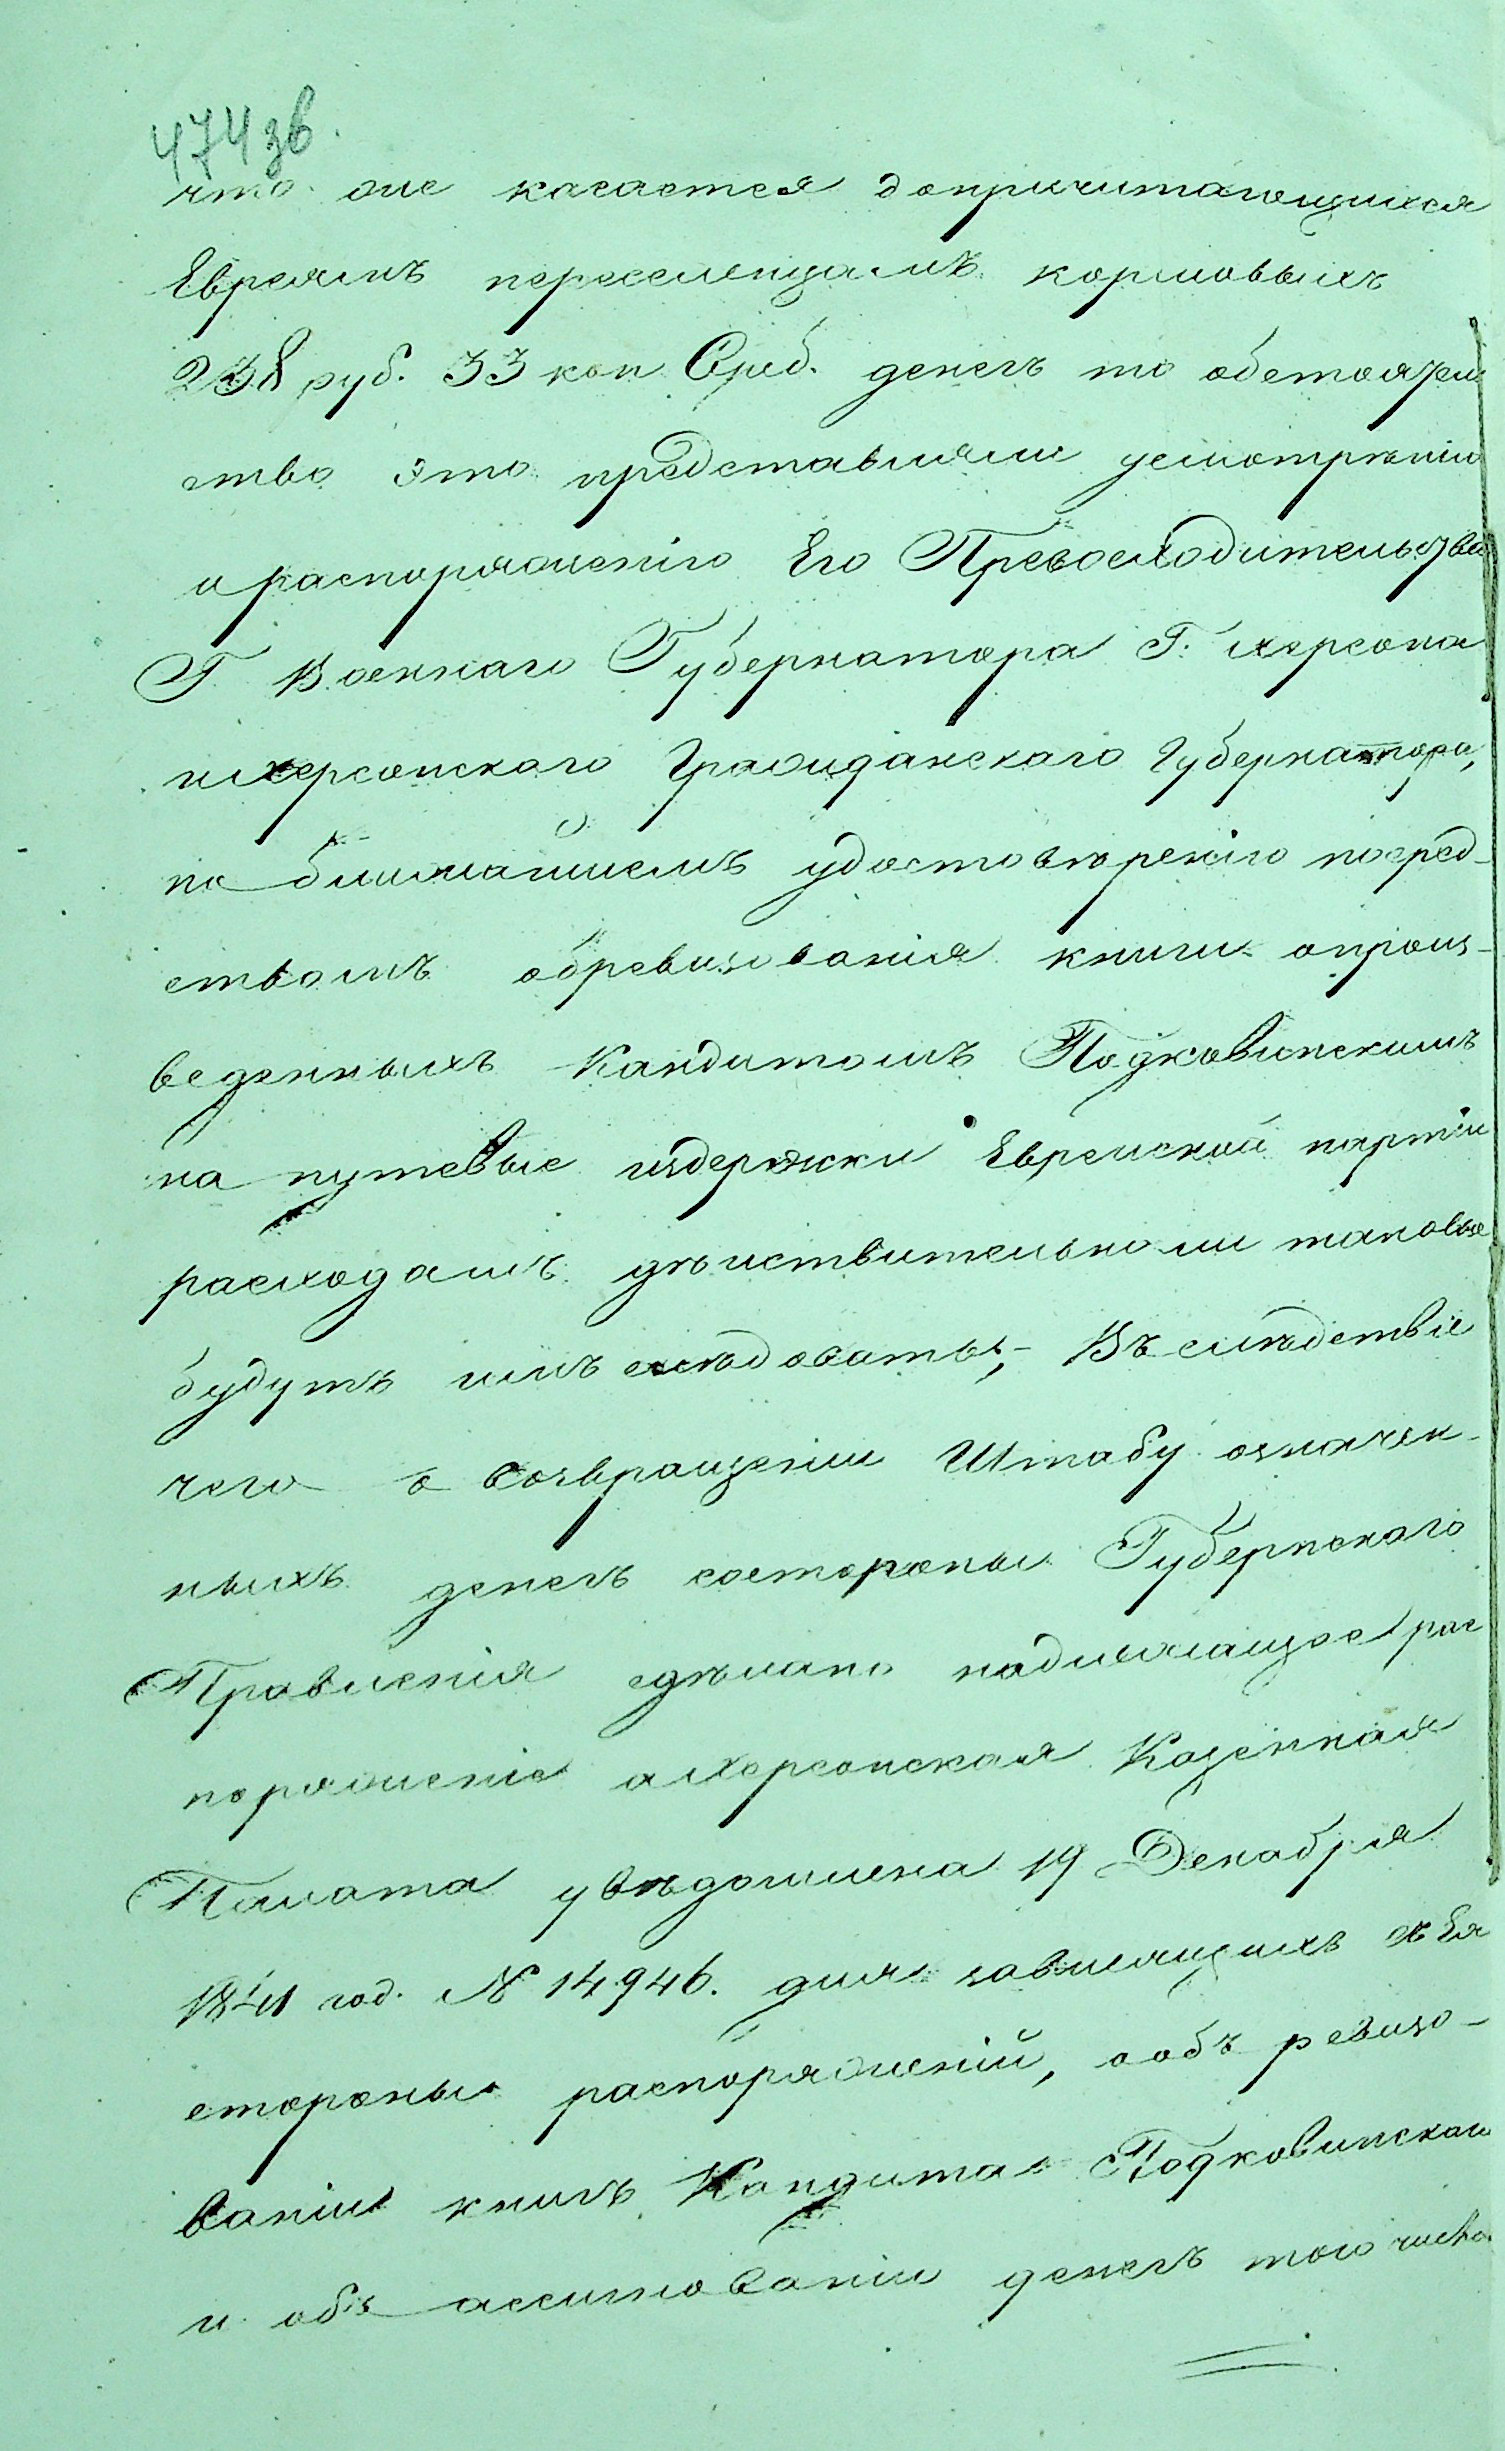 474 зв.
что оле касается допричитающихся
Евреямъ переселенцамъ кормовыхъ
238 руб. 33 коп Среб. денегъ то обстоятель
ство это представляли усмотренію
и распоряженію Его Превосходительства
Г. Военнаго Губернатора Г. Херсона
и Херсонского Гражданскаго Губернатора,
по ближайшемъ удостовѣренію посред-
ствомъ обревизованія книги опроиз-
веденныхъ Кандитомъ Подковинскимъ
на путевые издержки Евреиской партіи
расходамъ дѣиствительноли таковые
будутъ имъ слѣдоваты,- Въ слѣдствіе
чего о возвращеніи Штабу означен-
ныхъ денегъ состороны Губернского
Правленія сдѣлано надлежащее рас
поряженіе а Херсонская Казенная
Палата увѣдомлена 19 Декабря
1841 год. № 14946. для зависящихъ съ Ея
стороны распоряженій, о объ ревизо-
ваніи книгъ Кандита Подковинскаго
и объ ассигнованіи денегъ того числа